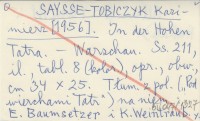 SAYSSE-TOBICZYK Kazi-
mierz [1956]. In der Hohen
Tatra. - Warschau. Ss. 211,
il. tabl. 8 (kolor), opr., obw.,
cm 34 x 25. Tłum. z pol. („Pod
wierchami Tatr") na
E. Baumsetzer i K. Weintraub.